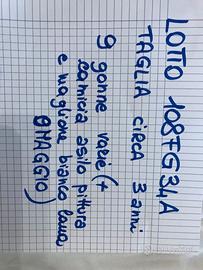 LOTTO 108FG34A
TAGLIA CIRCA 3 anni
9 gonne varie (+
camicia asilo pittura
e maglione bianco lana
OMAGGIO)